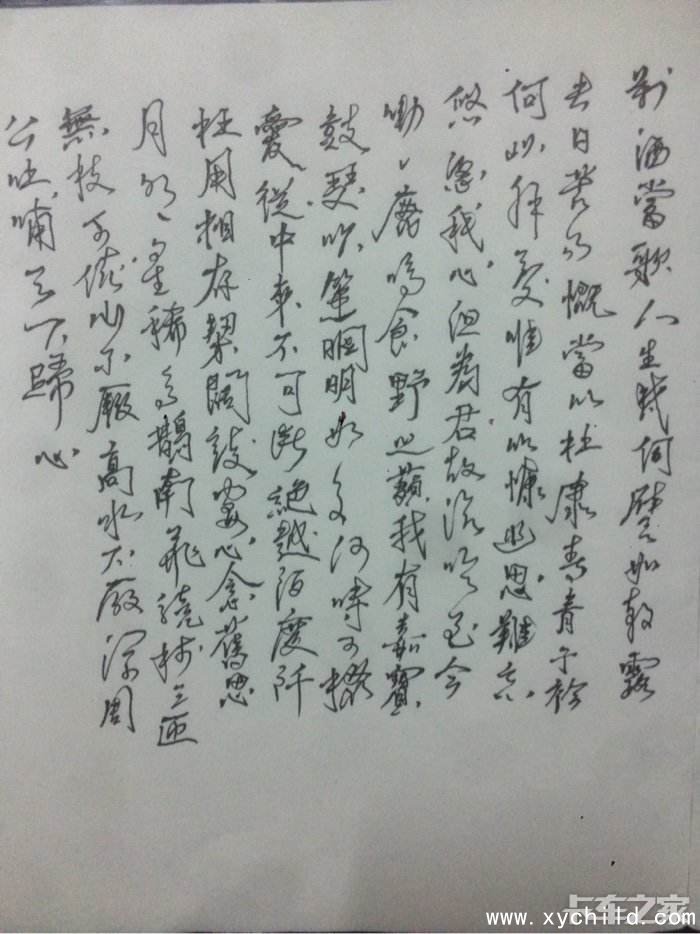 對酒當歌人生幾何譬如朝露
去日苦多慨當以杜康青青子衿
何以解憂惟有以慷幽思難忘
悠悠我心但為君故沉吟至今
呦、鹿鳴食野之蘋我有嘉賓
鼓瑟吹笙明明如月何時可掇
憂從中來不可斷絕越陌度阡
枉用相存契闊談宴心念舊恩
月明、星稀烏鵲南飛繞樹三匝
無枝可依山不厭高水不厭深周
公吐哺天下歸心
卡车之家
www.xychilld.com